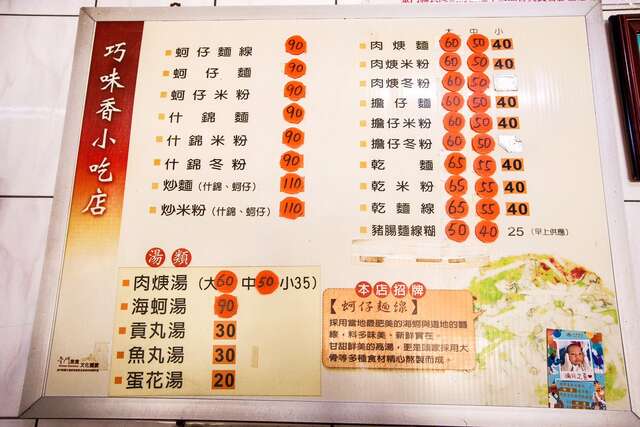 巧味香小吃店
蚵仔麵線 90
蚵仔麵 90
蚵仔米粉 90
什錦麵 90
什錦米粉 90
什錦冬粉 90
炒麵(什錦、蚵仔) 110
炒米粉(什錦、蚵仔) 110
大 中 小
肉焿麵 60 50 40
肉焿米粉 60 50 40
肉焿冬粉 60 50
擔仔麵 60 50 40
擔仔米粉 60 50 40
擔仔冬粉 60 50
乾麵 65 55 40
乾米粉 65 55 40
乾麵線 65 55 40
豬腸麵線糊 50 40 25 (早上供應)
湯類
肉焿湯 (大60 中50 小35)
海蚵湯 90
貢丸湯 30
魚丸湯 30
蛋花湯 20
本店招牌
【蚵仔麵線】
採用當地最肥美的海蚵與道地的麵
線，料多味美、新鮮實在
甘甜鮮美的高湯，更是頭家採用大
骨等多種食材精心熬製而成。